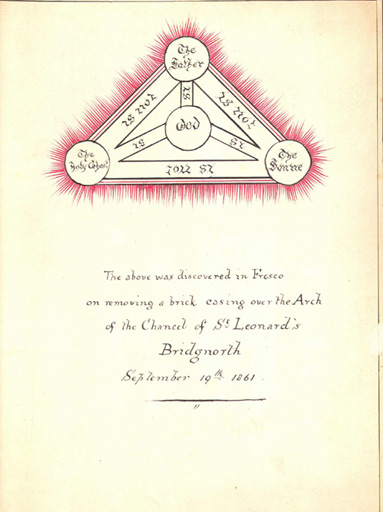 The
Father
is not
is
is not
God
is
is
The
Holy Ghost
The
Sonne
is not
The above was discovered in Fresco
on removing a brick casing over the Arch
of the Chancel of St. Leonard's
Bridgnorth
September 19th 1861.